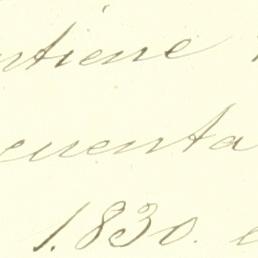 ntiene
cuenta
1.830. e